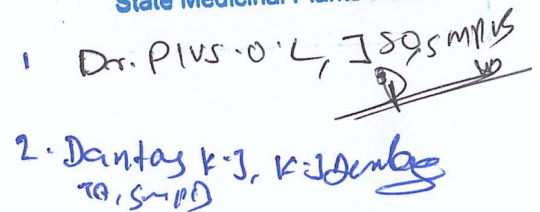 State Medicinal Plants
1 Dr. PIUS.O.L, JSO, SMPB
2. Dantas K.J,
TA, SMPB